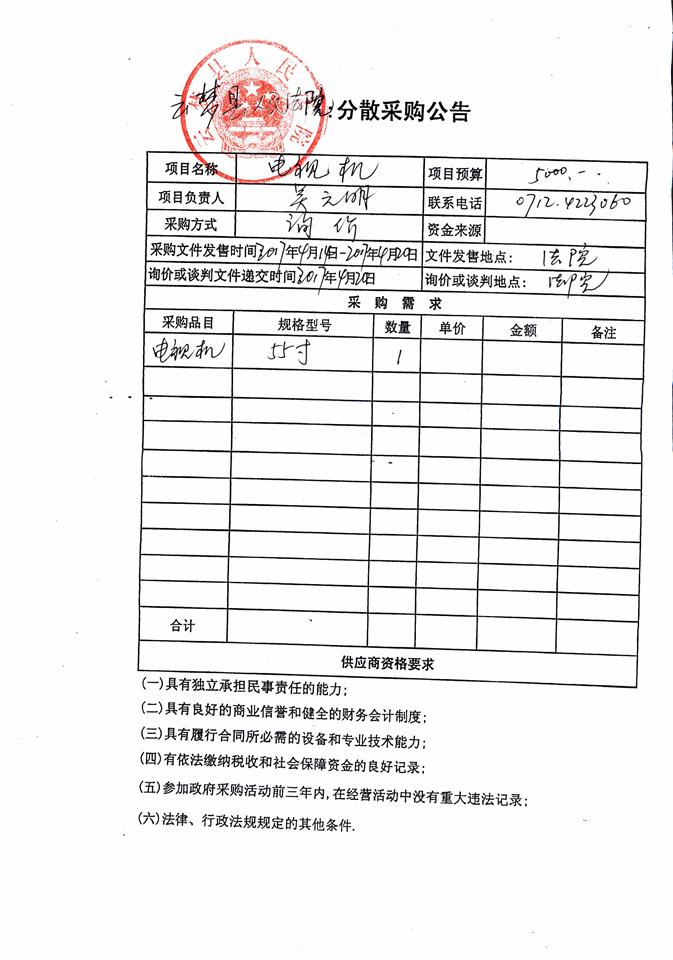 云梦县人民法院
云梦县人民法院:分散采购公告
项目名称 电视机 项目预算 5000.--
项目负责人 吴元明 联系电话 0712.4223060
采购方式 询价 资金来源
采购文件发售时间2017年4月14日-2017年4月20日 文件发售地点: 法院
询价或谈判文件递交时间2017年4月20日 询价或谈判地点: 法院
采购需求
采购品目 规格型号 数量 单价 金额 备注
电视机 55寸 1
合计
供应商资格要求
(一)具有独立承担民事责任的能力;
(二)具有良好的商业信誉和健全的财务会计制度;
(三)具有履行合同所必需的设备和专业技术能力;
(四)有依法缴纳税收和社会保障资金的良好记录;
(五)参加政府采购活动前三年内,在经营活动中没有重大违法记录;
(六)法律、行政法规规定的其他条件.